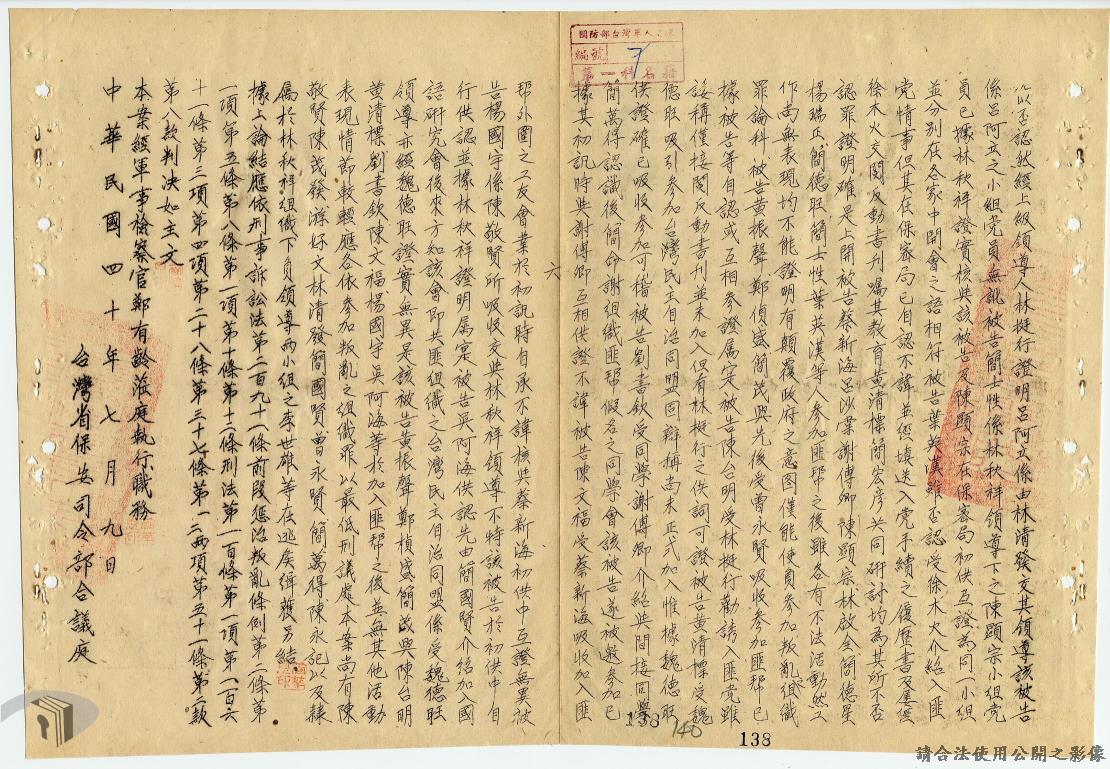 以否認然經上級領導人林挺行證明呂阿立係由林清發交其領導該被告
係呂阿立之小組党員無訛被告簡士性係林秋祥領導下之陳顯宗小組党
員已據林秋祥證實核與該被告及陳顯宗在保審局初供互證為同一小組
並分別在各家中開會之語相符被告葉英漢雖否認受徐木火介紹入匪
党情事但其在保審局已自認不諱並經填送入党手續之履歷書及屢經
徐木火交閱反動書刊囑其教育黃清標簡宏彦共同研討均為其所不否
認罪證明確是上開被告蔡新海呂沙棠謝傳卿陳顯宗林啟全簡德星
楊瑞正簡德旺簡士性葉英漢等人參加匪帮之後雖各有不法活動然工
作尚無表現均不能證明有顛覆政府之意图僅能使負參加叛亂組織
罪論科被告黃振聲鄭偵盛簡茂興先後受曾永賢吸收參加匪帮已
據被告等自認或互相參證属实被告陳台明受林挺行勸誘入匪党雖
諉稱僅接閱反動書刊並未加入但有林挺行之供詞可證被告黃清標受魏
德旺吸引參加台灣民主自治同盟固辯稱尚未正式加入惟據魏德旺
供證確已吸收參加可稽被告劉書欽受同學謝傳卿介紹與間接同學
簡萬得認識後簡命謝組織匪帮假名之同學會該被告遂被邀參加已
據其初訊時與謝傳卿互相供證不諱被告陳文福受蔡新海吸收加入匪
帮外圍之工友會業於初訊時自承不諱核與蔡新海初供中互證無異被
告楊國宇係陳敬賢所吸收交與林秋祥領導不特該被告於初供中自
行供認並據林秋祥證明属实被告吳阿海供認先由簡國賢介紹加入國
語研究會後來方知該會即共匪組織之台灣民主自治同盟係受魏德旺
領導亦經魏德旺證實無異是該被告黃振聲鄭楨盛簡茂興陳台明
黃清標劉書欽陳文福楊國宇吳阿海等於加入匪帮之後並無其他活動
表現情節較輕應各依參加叛亂之組織罪以最低刑議處本案尚有陳
敬賢陳茂發游好文林清發簡國賢曾永賢簡萬得陳永記以及隸
屬於林秋祥組織下負領導两小組之李世雄等在逃矣緝獲另結
據上論結應依刑事訴訟法第二百九十一條前段惩治叛亂條例第二條第
一項第五條第八條第一項第十條第十二條刑法第一百條第一項第一百六
十一條第三項第四項第二十八條第三十七條第一二两項第五十一條第二款
第八款判決如主文
本案經軍事檢察官鄭有齡蒞庭執行職務
中華民國四十年七月九日
台灣省保安司令部合議庭
六
國防部台灣軍人
編號
7
第一科名籍
138
140
138
請合法使用公開之影像